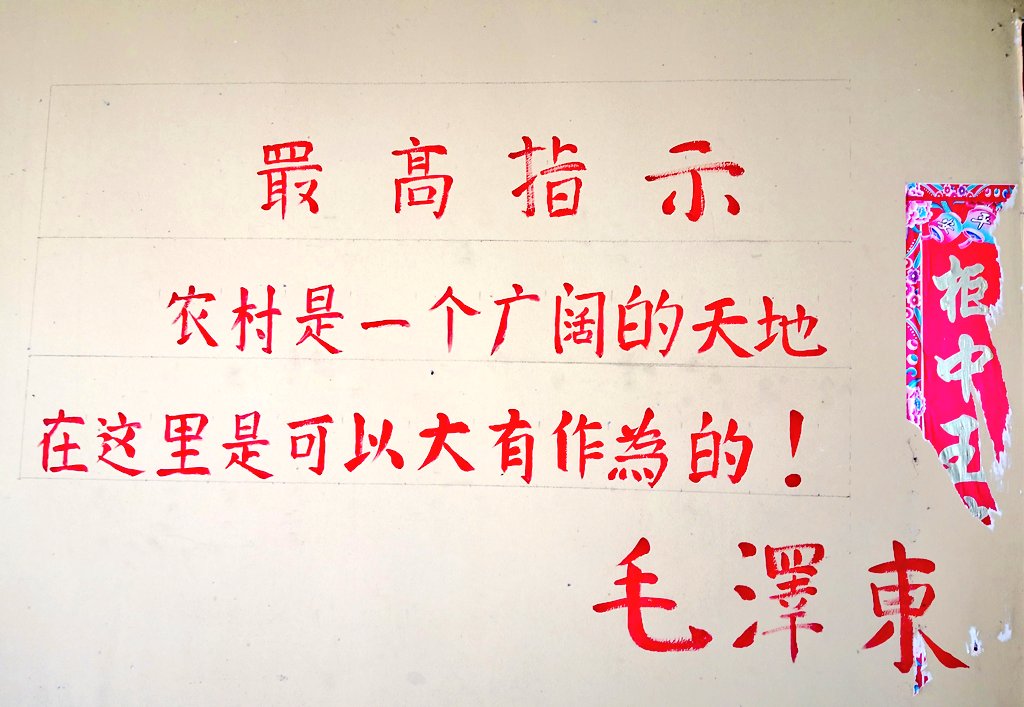 最高指示
农村是一个广阔的天地
在这里是可以大有作為的！
毛澤東